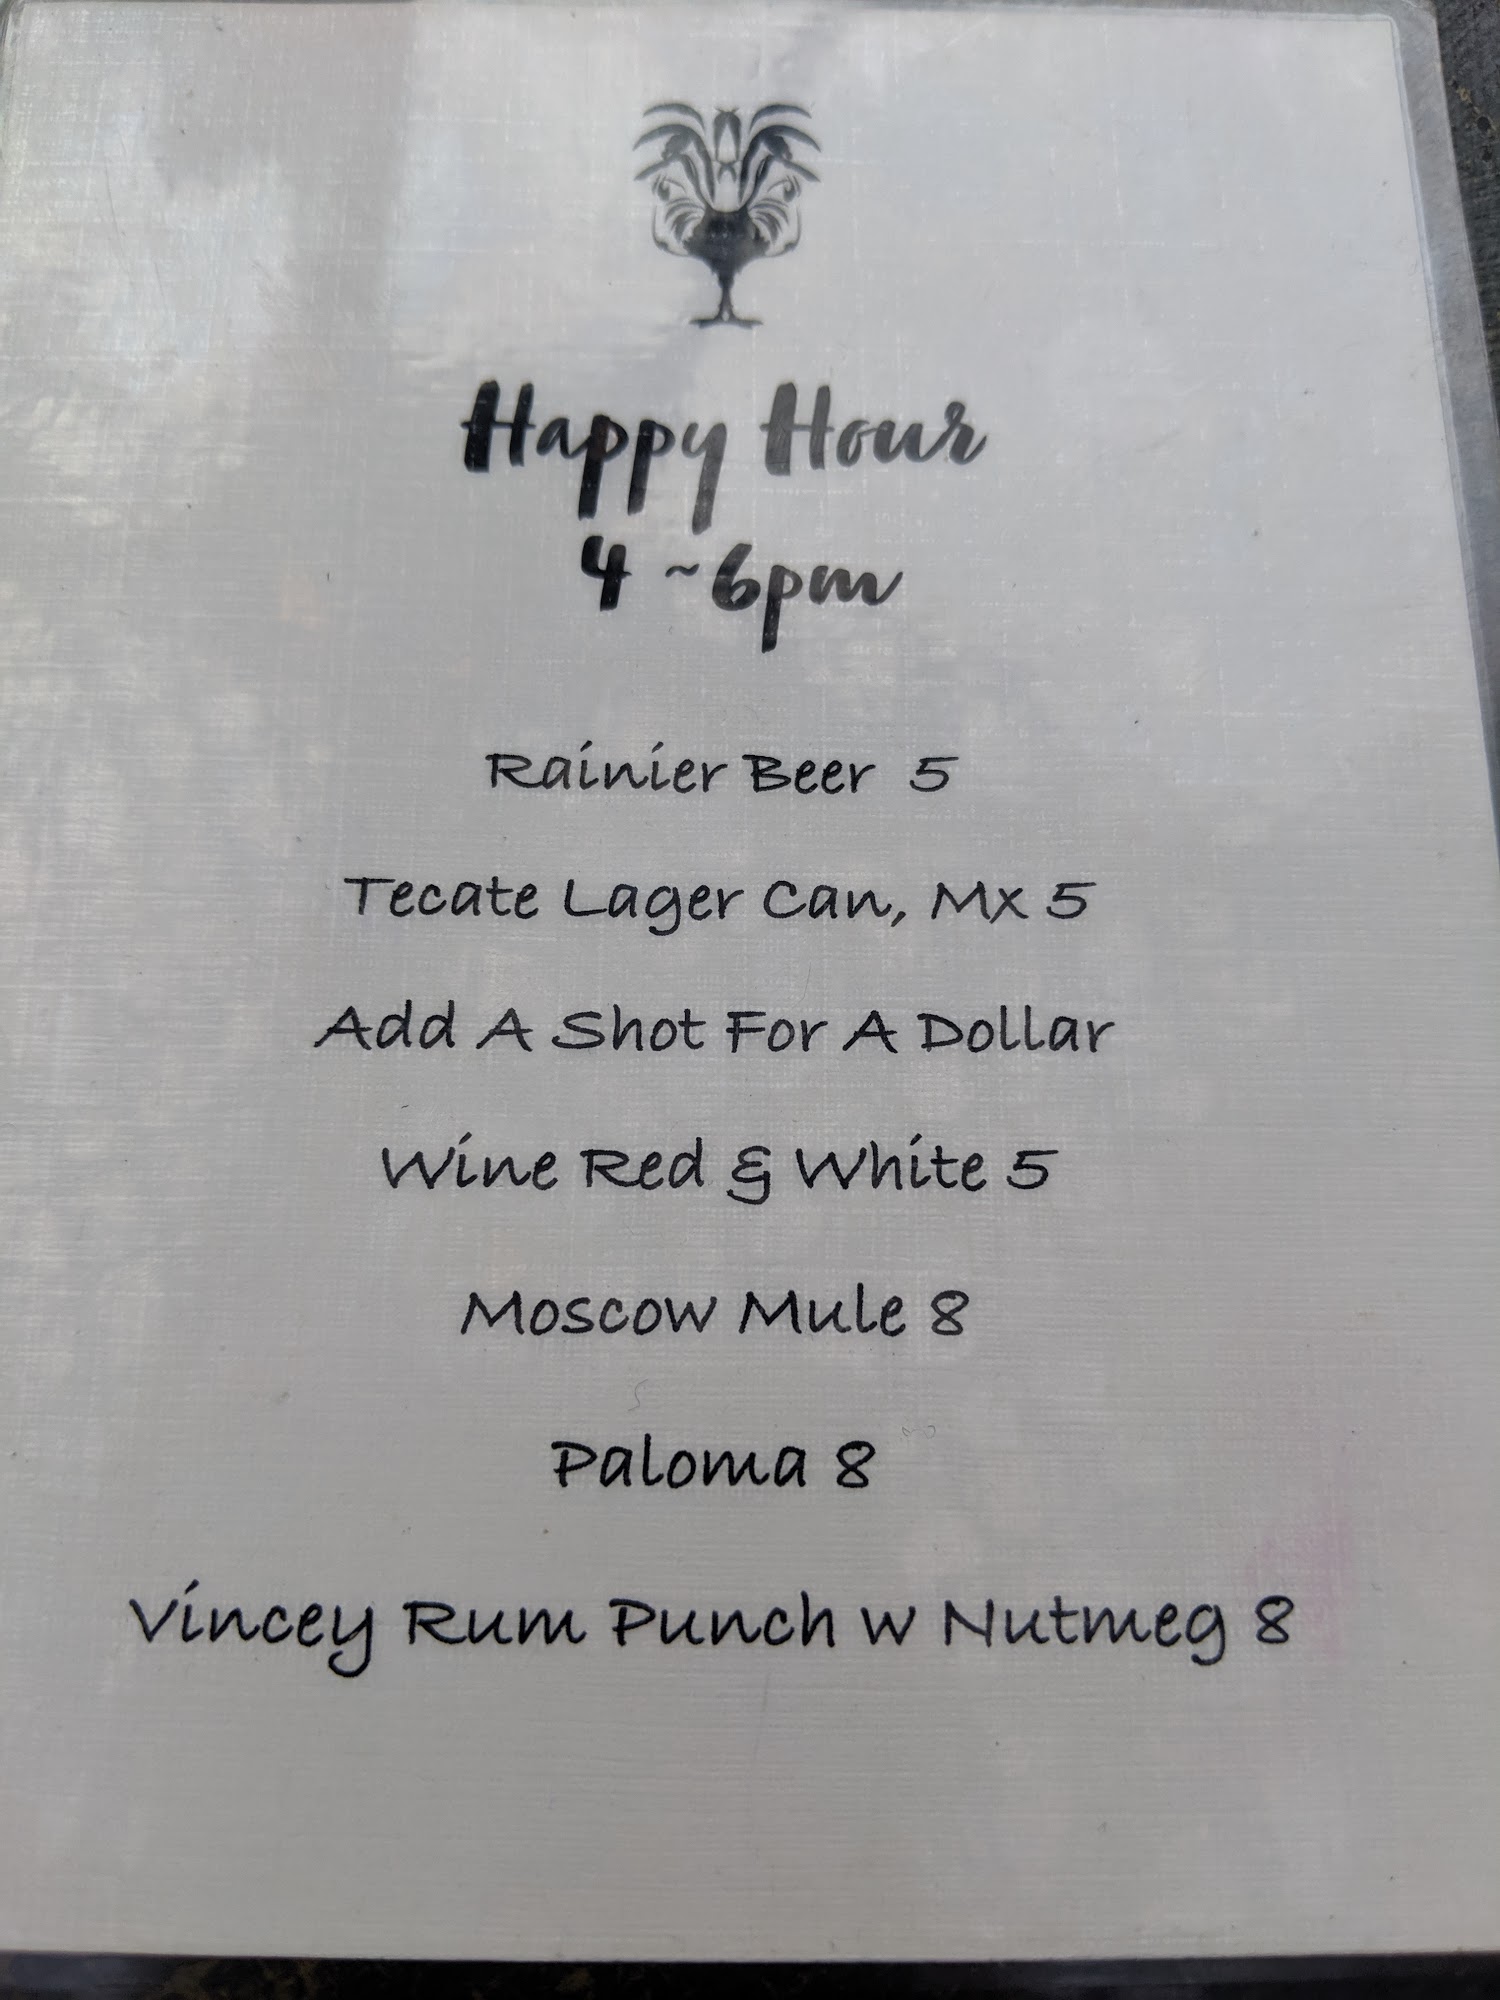 Happy Hour
4 ~6pm
Rainier Beer 5
Tecate Lager Can, Mx 5
Add A Shot For A Dollar
Wine Red & White 5
Moscow Mule 8
Paloma 8
Vincey Rum Punch w Nutmeg 8